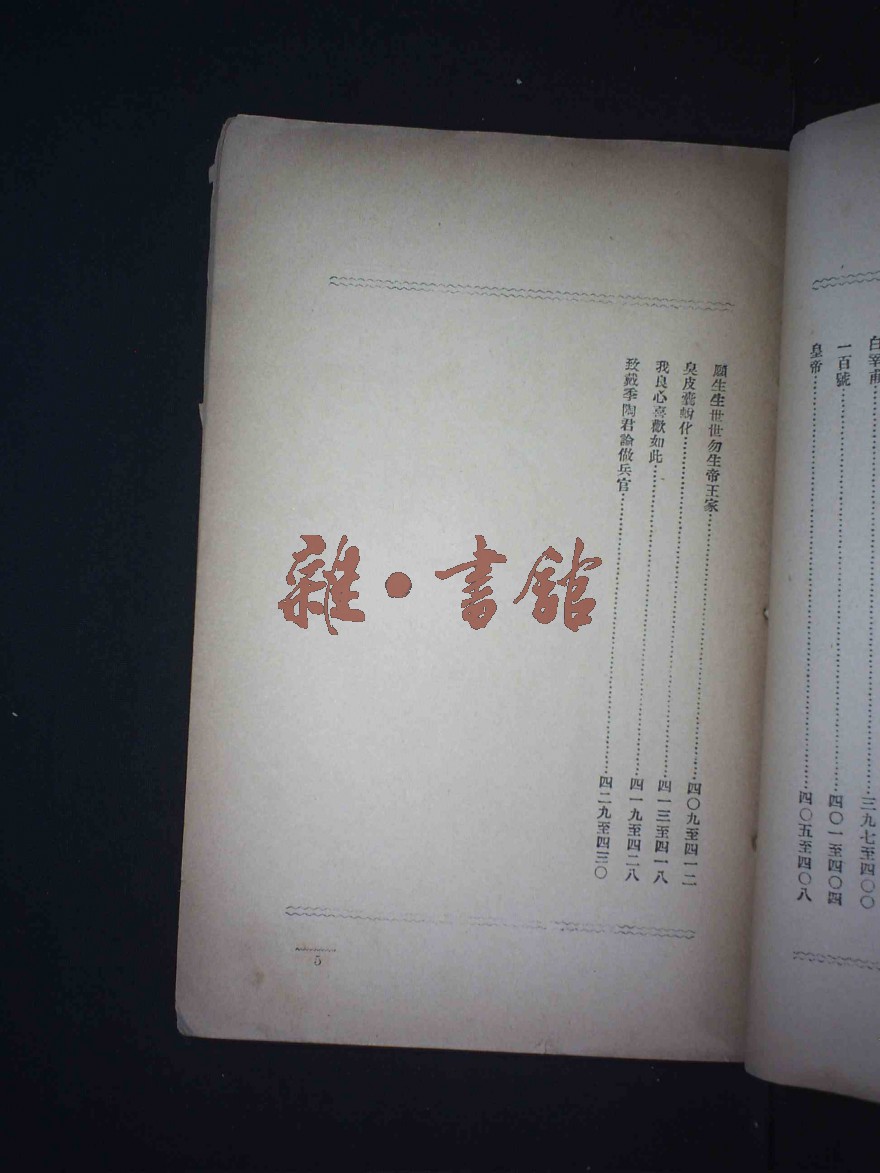 白宰甫⋯⋯三九七至四〇〇
一百號⋯⋯四〇一至四〇四
皇帝⋯⋯四〇五至四〇八
願生生世世勿生帝王家⋯⋯四〇九至四一二
臭皮囊蛻化⋯⋯四一三至四一八
我良心喜歡如此⋯⋯四一九至四二八
致戴季陶君論做兵官⋯⋯四二九至四三〇
5
雜·書館